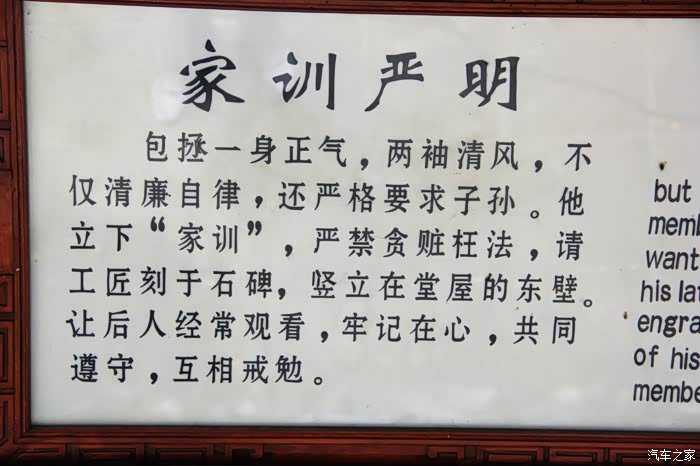 家训严明
包拯一身正气，两袖清风，不
仅清廉自律，还严格要求子孙。他
立下“家训”，严禁贪赃枉法，请
工匠刻于石碑，竖立在堂屋的东壁。
让后人经常观看，牢记在心，共同
遵守，互相戒勉。
but
memb
want
his lat
engra
of his
membe
汽车之家